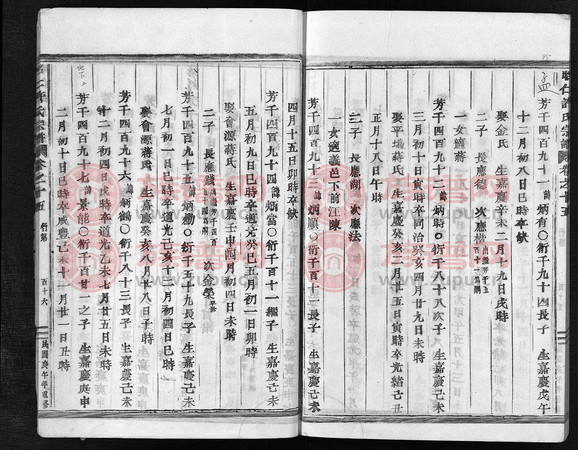 芳千四百九十一 諱炳有○衍千九十四長子 生嘉慶戊午
十二月初八日巳時卒缺
娶金氏 生嘉慶辛未二月十九日戌時
二子 長應德 次應楷
一女適蔣
芳千四百九十二 諱炳時○衍千八十八次子 生嘉慶己未
三月初十日丑時卒同治癸亥四月廿九日辰時
娶平塲蔣氏 生嘉慶癸亥二月十五日寅時卒光緒己丑
正月十八日午時
二子 長應湖 次應法
一女適義邑下前江陳
芳千四百九十三 諱炳順○衍千一百十一長子 生嘉慶己未
四月十五日卯時卒缺
芳千四百九十四 諱炳富○衍千一百十一繼子 生嘉慶己未
五月初九日巳時卒道光癸巳五月初一日卯時
娶會源蔣氏 生嘉慶壬申四月初四日未時
二子 長應 次金榮
芳千四百九十五 諱炳 ○衍千五十九長子 生嘉慶己未
七月初一日巳時卒道光己亥十月初四日巳時
娶會源蔣氏 生嘉慶癸亥八月廿八日子時
芳千四百九十六 諱炳鶴○衍千八十三長子 生嘉慶己未
十二月初四日未時卒道光乙未七月廿五日未時
芳千四百九十七 諱景能○衍千百廿一之子 生嘉慶庚申
二月初一日丑時卒咸豐己未十一月廿一日丑時
許氏宗譜 卷之十五 行第 百十六 民國庚午年重修